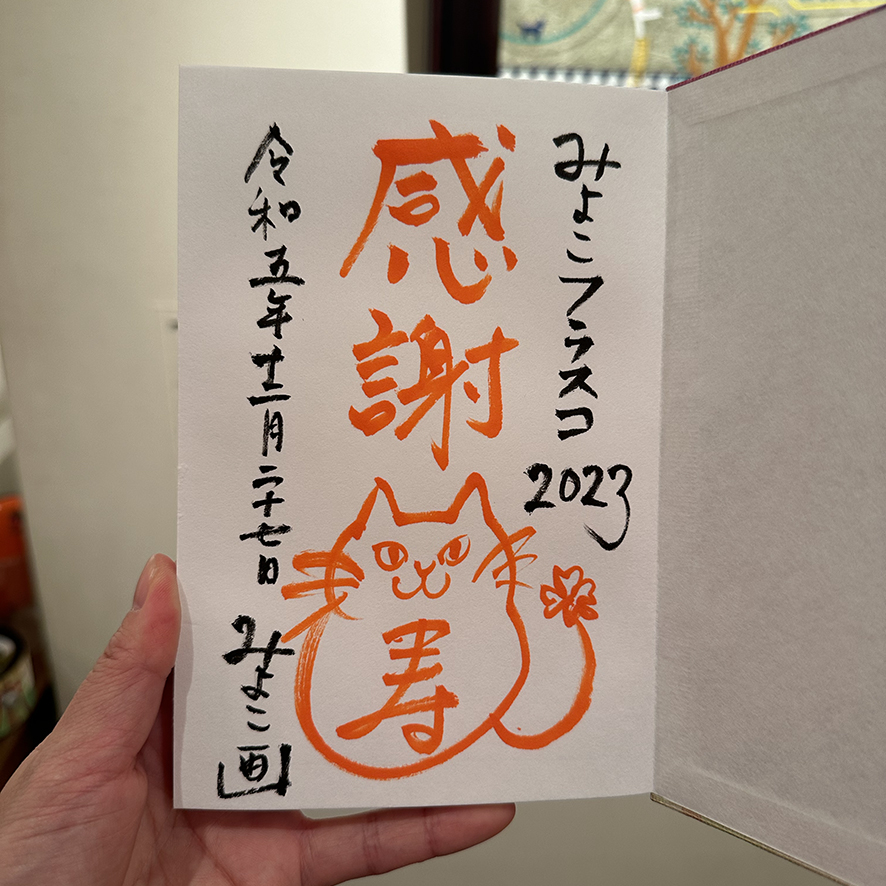 みよこフラスコ
2023
感謝
寿
令和五年十二月二十七日
みよこ画